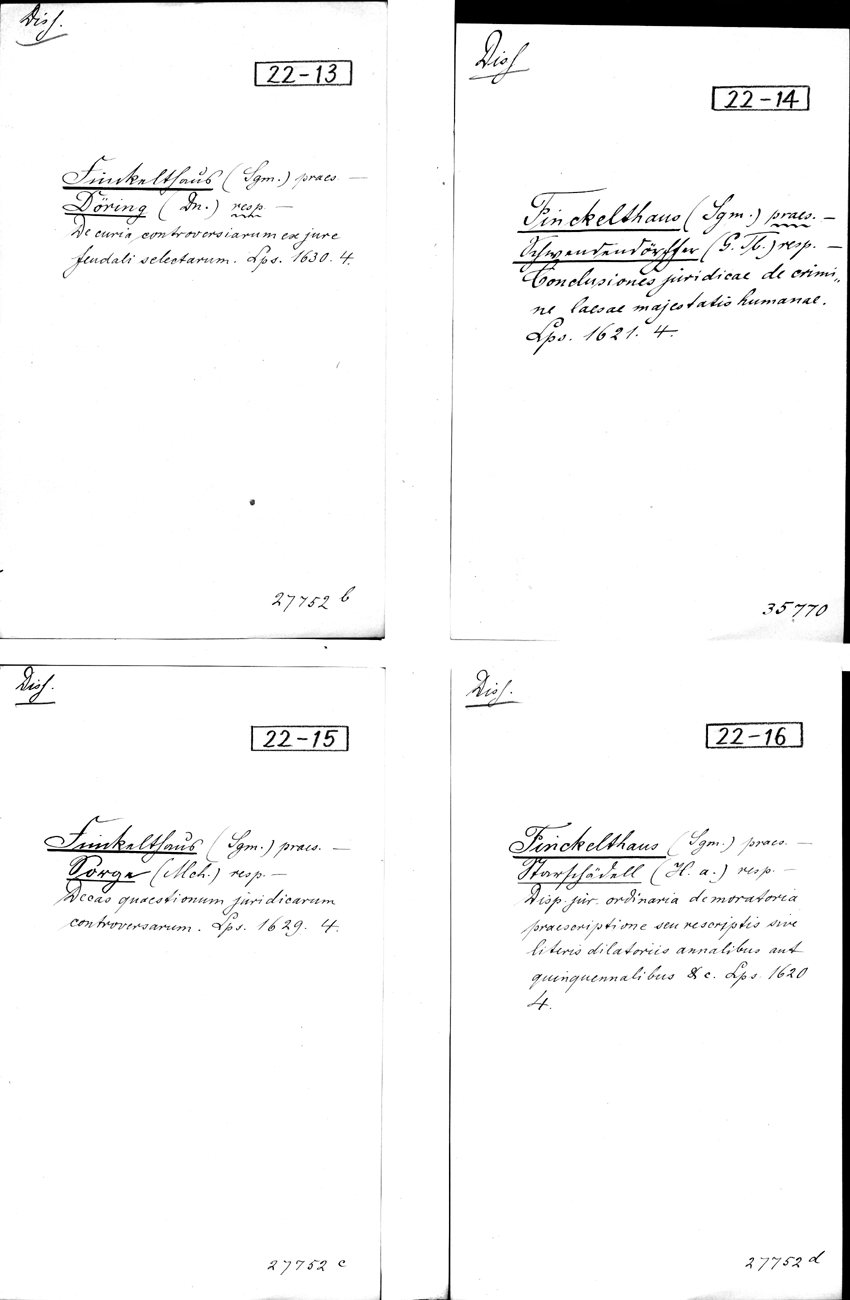 Diss.
22-13
Finckelthaus (Sgm.) praes. —
Döring (Dn.) resp. —
De curia controversiarum ex jure
feudali selectarum. Lps. 1630. 4.
27752 b
Diss.
22-14
Finckelthaus (Sgm.) praes. —
Schwendendörffer (G. Th.) resp. —
Conclusiones juridicae de crimi„
ne laesae majestatis humanae.
Lps. 1621. 4.
35770
Diss.
22-15
Finckelthaus (Sgm.) praes. —
Sorge (Mch.) resp. —
Decas quaestionum juridicarum
controversarum. Lps. 1629. 4.
27752 c
Diss.
22-16
Finckelthaus (Sgm.) praes. —
Starschädell (H. a.) resp. —
Disp. jur. ordinaria de moratoria
praescriptione seu rescriptis sive
literis dilatoriis annalibus aut
quinquennalibus & c. Lps. 1620
4.
27752 d